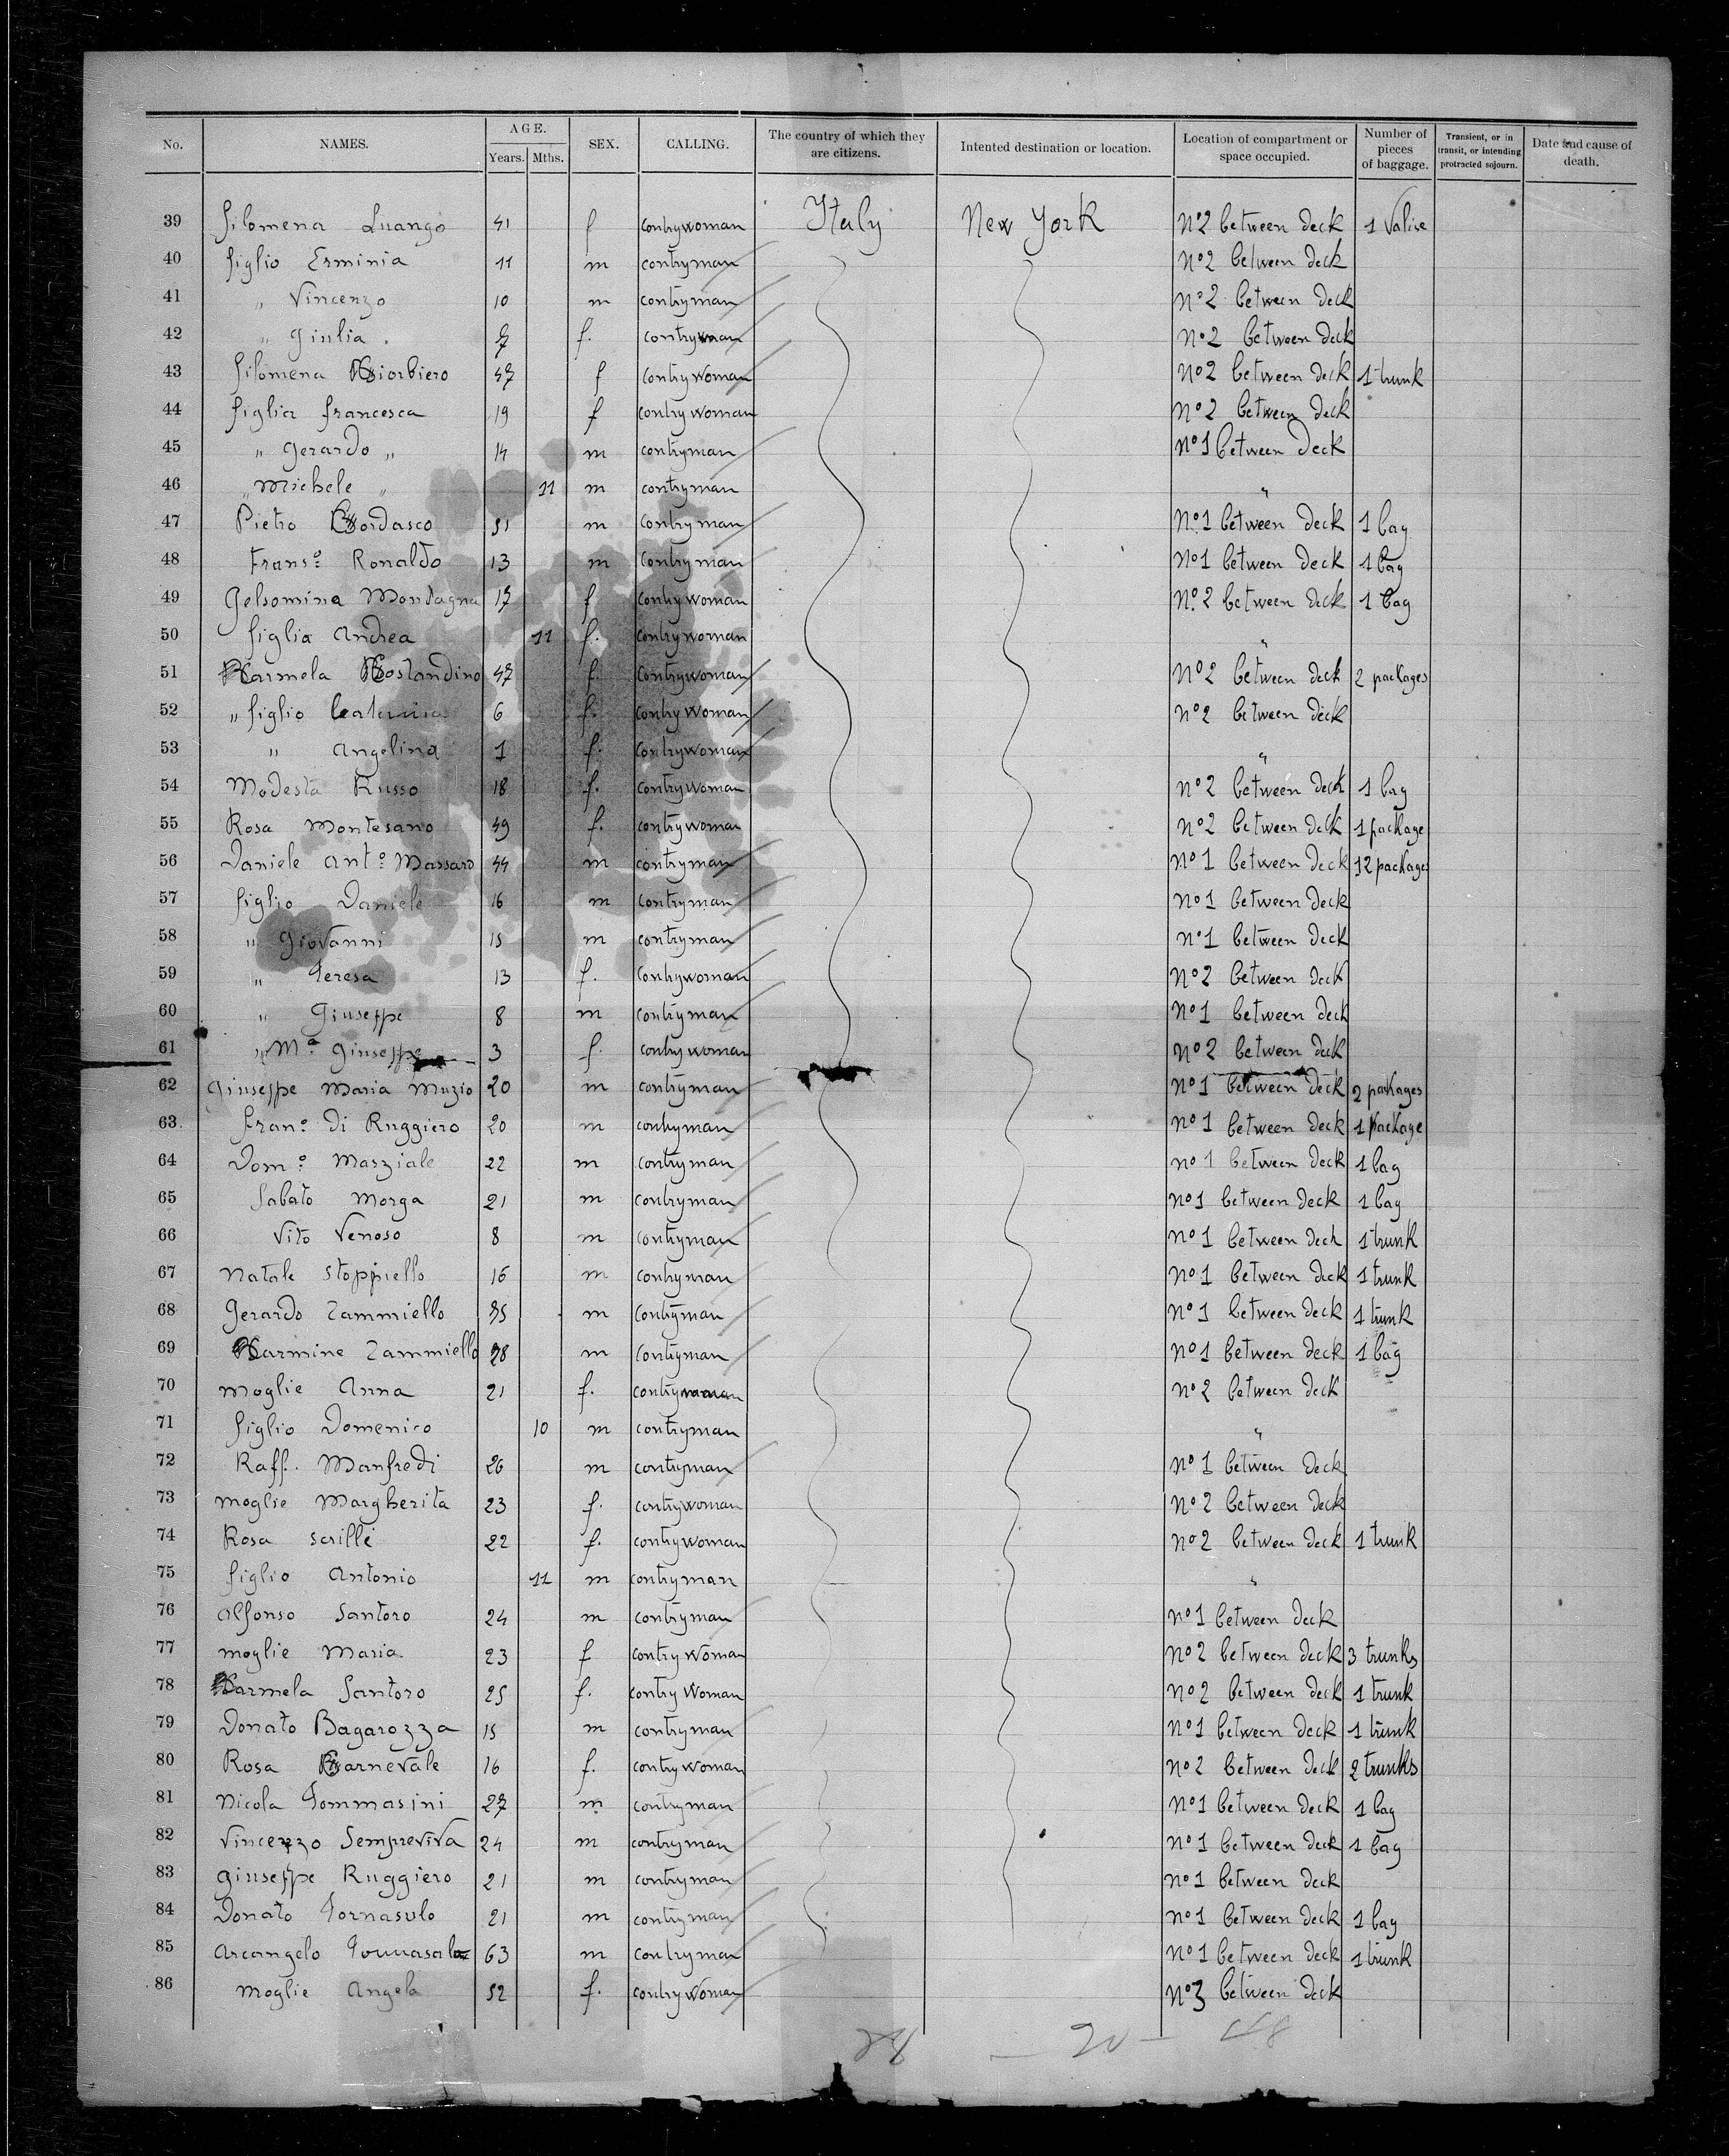 No. NAMES. AGE. Years. Mths. SEX. CALLING. The country of which they are citizens. Intented destination or location. Location of compartment or space occupied. Number of pieces of baggage. Transient, or in transit, or intending protracted sojourn. Date and cause of death.
39 filomena Luango 41 f contrywoman Italy New York No2 between deck 1 valise
40 figlio Erminia 11 m contryman No2 between deck
41 " Vincenzo 10 m contryman No2 between deck
42 " Giulia 7 f. No2 between deck
43 filomena 47 f contrywoman No2 between deck 1 trunk
44 figlia francesca 19 f contrywoman No2 between deck
45 " Gerardo " 14 m contryman No1 between deck
46 " Michele " 11 m contryman "
47 Pietro Cordasco m contryman No1 between deck 1 bag
48 Frans.o Ronaldo 13 m contryman No1 between deck 1 bag
49 Gelsomina Montagna 17 f contrywoman No.2 between deck 1 bag
50 figlia Andrea 11 f. contrywoman "
51 Carmela Costandino 47 f. contrywoman No2 between deck 2 packages
52 " figlio 6 f. contrywoman No2 between deck
53 " Angelina 1 f. contrywoman "
54 Modesta Russo 18 f. contrywoman No2 between deck 1 bag
55 Rosa Montesano 49 f. contrywoman No2 between deck 1 package
56 Daniele Ant.o Massaro 44 m contryman No1 between deck 12 packages
57 figlio Daniele 16 m contryman No1 between deck
58 " Giovanni 15 m contryman No1 between deck
59 " Teresa 13 f. contrywoman No2 between deck
60 " Giuseppe 8 m contryman No1 between deck
61 " M.a Giuseppe 3 f. contrywoman No2 between deck
62 Giuseppe Maria Muzio 20 m contryman No1 between deck 2 packages
63. Fran.o Di Ruggiero 20 m contryman No1 between deck 1 package
64 Dom.o Marziale 22 m contryman No1 between deck 1 bag
65 Sabato Morga 21 m contryman No1 between deck 1 bag
66 Vito Venoso 8 m contryman No1 between deck 1 trunk
67 Natale Stoppiello 16 m contryman No1 between deck 1 trunk
68 Gerardo Zammiello 35 m contryman No1 between deck 1 trunk
69 Carmine Zammiello 28 m contryman No1 between deck 1 bag
70 moglie Anna 21 f. contrywoman No2 between deck
71 figlio Domenico 10 m contryman "
72 Raff. Manfredi 26 m contryman No1 between deck
73 moglie Margherita 23 f. contrywoman No2 between deck
74 Rosa Scrille 22 f. contrywoman No2 between deck 1 trunk
75 figlio Antonio 11 m contryman "
76 Alfonso Santoro 24 m contryman No1 between deck
77 moglie Maria 23 f contrywoman No2 between deck 3 trunks
78 Carmela Santoro 25 f. contry Woman No2 between deck 1 trunk
79 Donato Bagarozza 15 m contryman No1 between deck 1 trunk
80 Rosa Carnevale 16 f. contrywoman No2 between deck 2 trunks
81 Nicola Tommasini 27 m contryman No1 between deck 1 bag
82 Vincenzo Sempreviva 24 m contryman No1 between deck 1 bag
83 Giuseppe Ruggiero 21 m contryman No1 between deck
84 Donato Tornasulo 21 m contryman No1 between deck 1 bag
85 Arcangelo 63 m contryman No1 between deck 1 trunk
86 moglie Angela 52 f. contrywoman No3 between deck
— 20 — 48